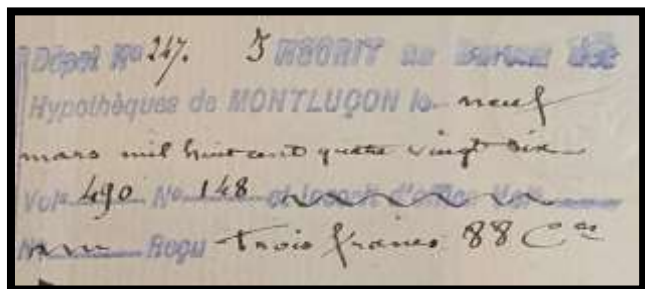 Dépôt No 247. au Bureau des
Hypothèques de MONTLUÇON le neuf
mars mil huit cent quatre vingt
Vol. 490 No 148 et inscrit d'office Vol.
No Reçu trois francs 88 Ces